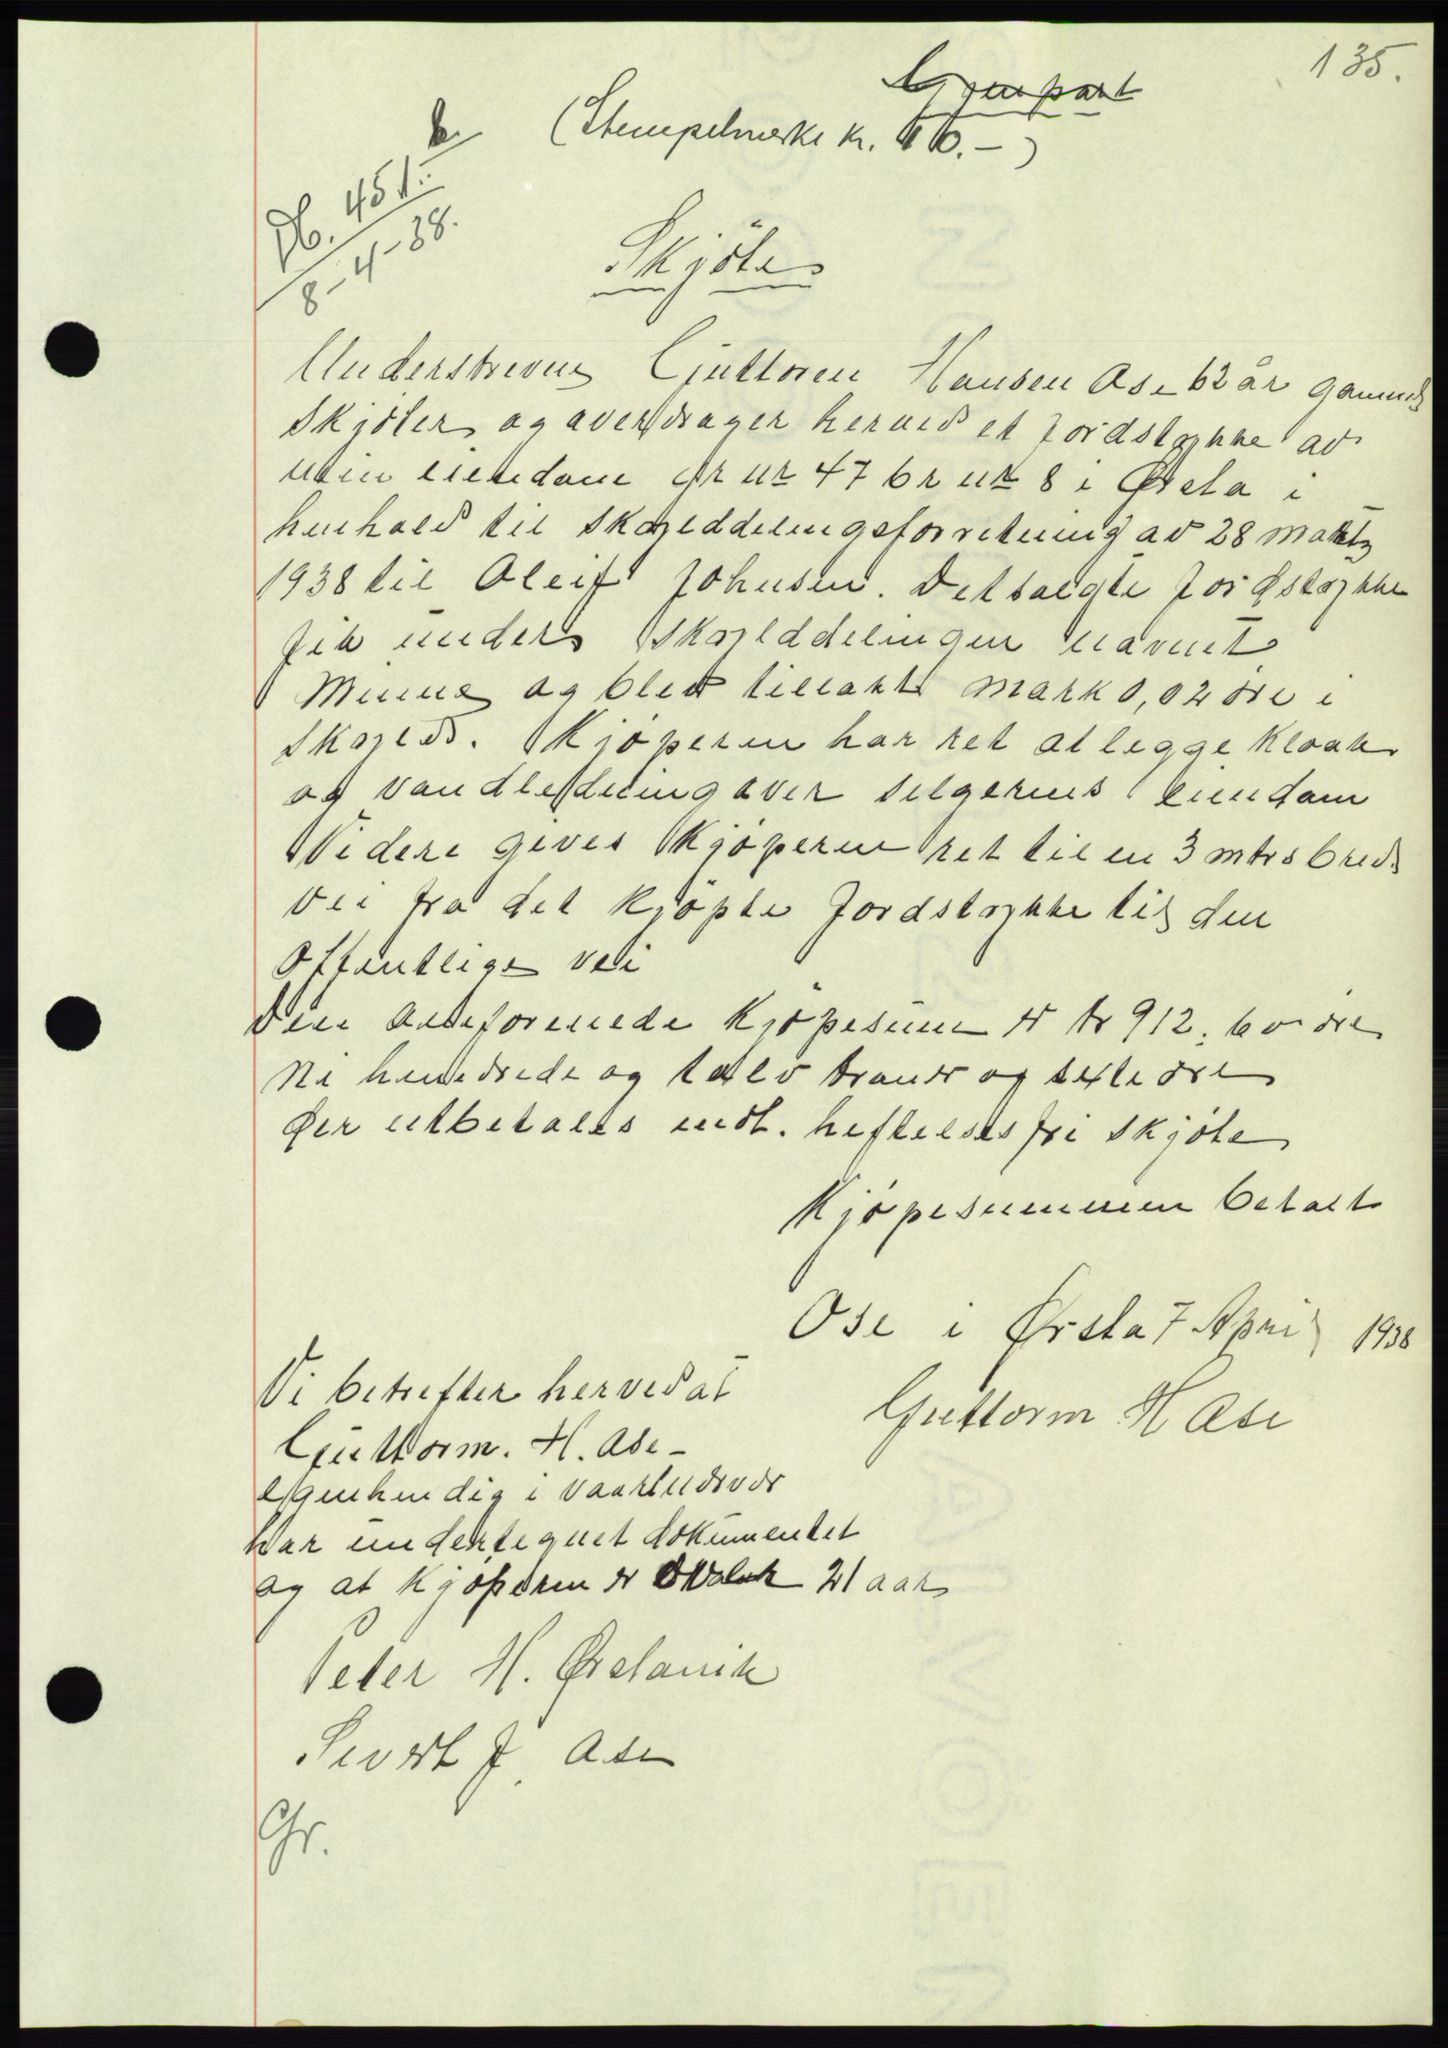 135.
Gjenpart
(Stempelmerke kr. 10.-)
Db. 451
8-4-38.
Skjöte
Underskrevne Guttorm Hansen Ose 62 år gammel
skjöter og averdrager herved et Jordstykke av
min eiendom gr nr 47 br nr 8 i Ørsta i
henhold til skylddelingsforretning av 28 marts
1938 til Oleif Johnsen. Det solgte Jordstykke
fik under skylddelingen navnet
Minne og blev tillakt mark 0,02 øre i
skyld. Kjöperen har ret at legge Kloak
og vandledning over selgerens eiendom
Videre gives Kjöperen ret til en 3 mtrs bred
vei fra det kjöpte Jordstykke til den
offentlige vei
Den omforenede Kjöpesum er kr 912. 60 øre
Ni hundrede og tolv kroner og sexti øre
der utbetales mot. heftelsesfri skjöte
Kjöpesummen betalt
Ose i Ørsta 7 April 1938
Guttorm H Ose
Vi bekrefter herved at
Guttorm. H. Ose -
egenhendig i vaart nærvær
har undertegnet dokumentet
og at Kjöperen er over 21 aar
Peter H. Ørstavik
Sivert J. Ose
Gr.